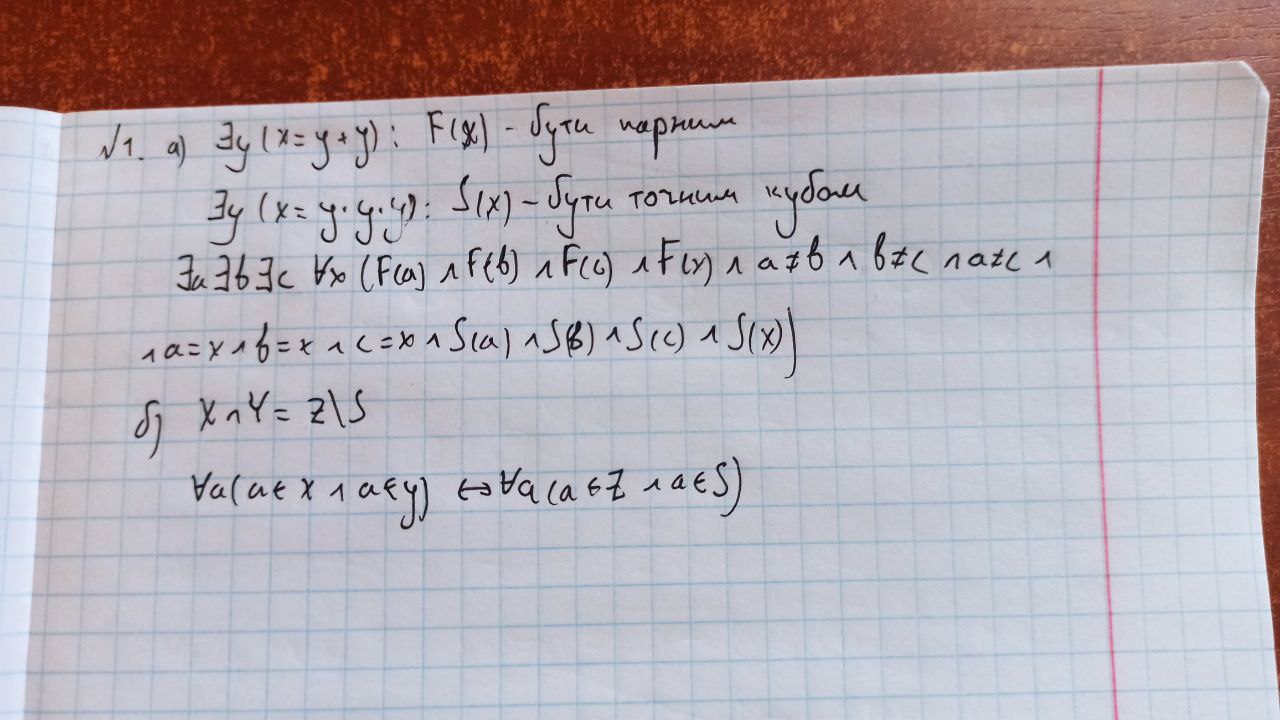 №1. а) ∃y (x = y + y) : F(x) - бути парним
∃y (x = y · y · y) : S(x) - бути точним кубом
∃a ∃b ∃c ∀x (F(a) ∧ F(b) ∧ F(c) ∧ F(x) ∧ a ≠ b ∧ b ≠ c ∧ a ≠ c ∧
∧ a = x ∧ b = x ∧ c = x ∧ S(a) ∧ S(b) ∧ S(c) ∧ S(x))
б) X ∩ Y = Z \ S
∀a (a ∈ X ∧ a ∈ y) ↔ ∀a (a ∈ Z ∧ a ∈ S)